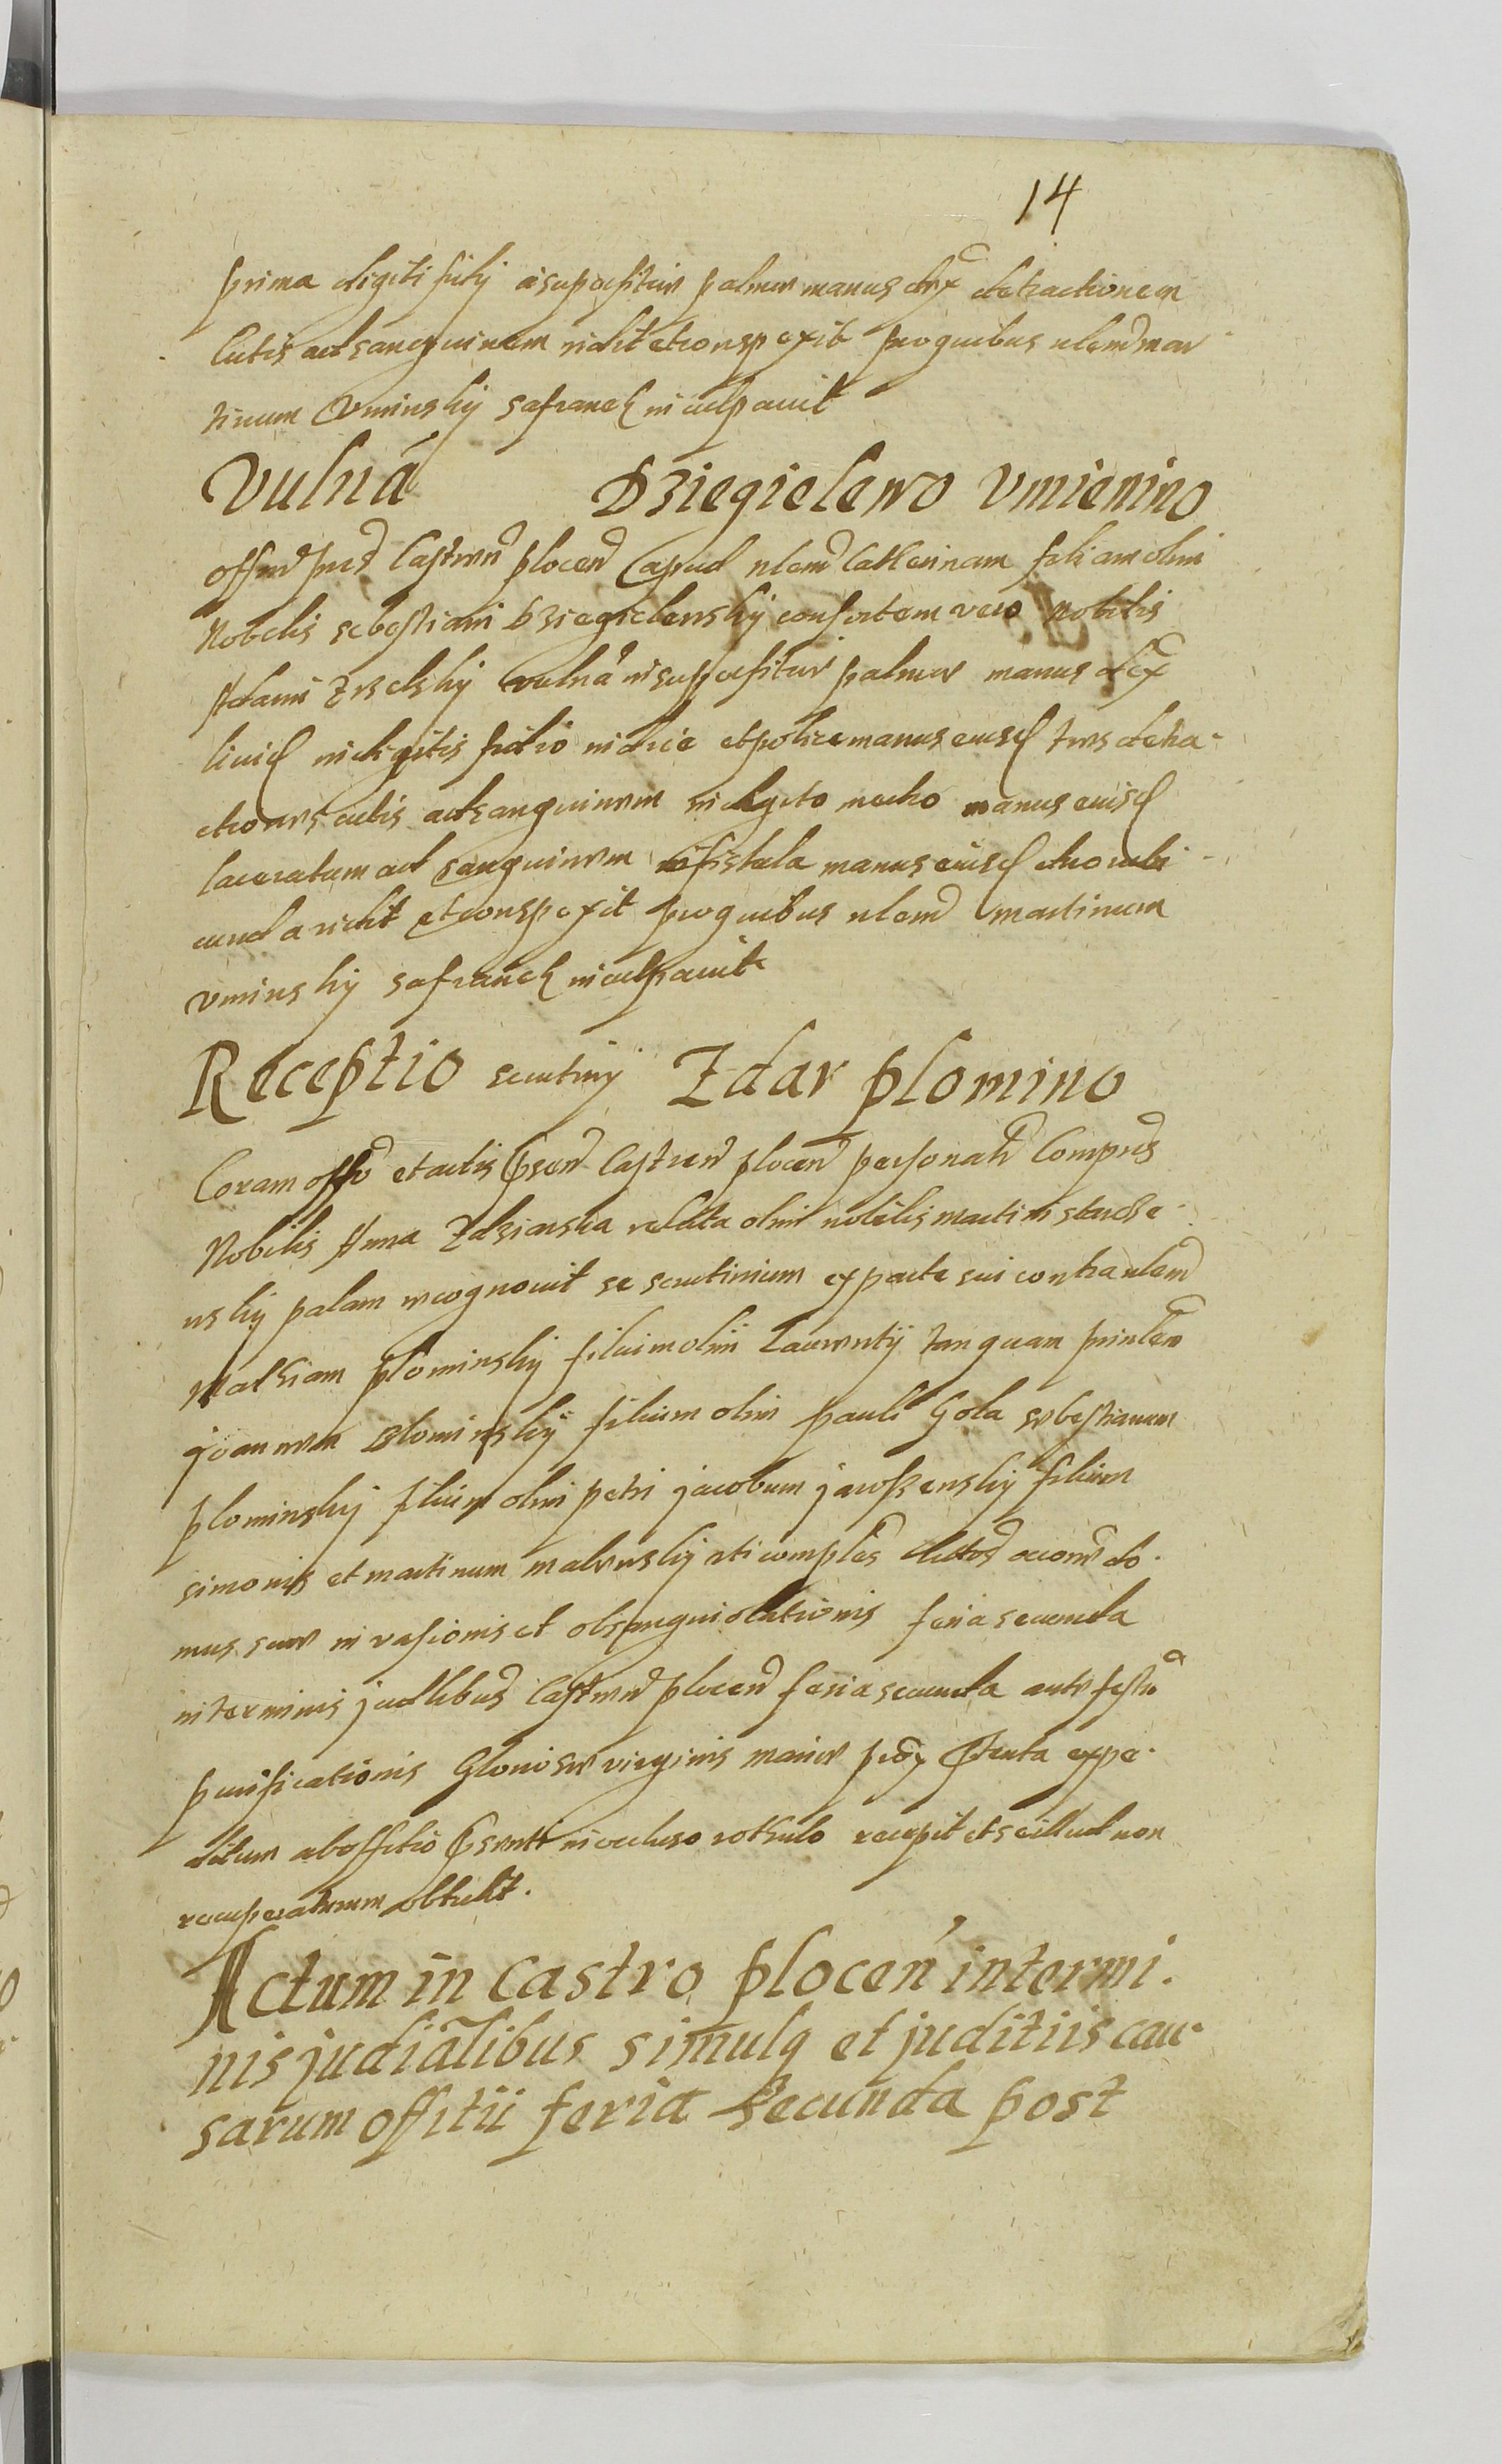 14
prima digiti in superfitie palmae manus dex detractionem
Cutis ad sanguinem vidit et conspexit pro quibus nlem mar
tinum Uminsky Safranek inculpavit
Vulnā Dziegielewo Umienino
offm pns Castren plocen apud nlem Catherinam filiam olim
Nobilis sebestiani Dziegielewsky consortem vero Nobilis
Adami vulnā in superfitie palmae manus dex
livid in digitis et police manus eiusd tres detra-
ctiones cutis ad sanguinem in digito medio manus eiusd
laceratum ad sanguinem in fistula manus eiusd
cunda vidit et conspexit pro quibus nlem martinum
Uminsky Safranek inculpavit
Receptio scrutiny Zdar plomino
Coram offo et actis psen Castren plocen personalr Compns
Nobilis Anna Zdziarska relicta olim nobilis martini
nsky palam recognovit se scrutinium ex parte sui contra nlem
Mathiam plominsky filium olim Laurentÿ tanquam prinlem
joannem plominskÿ filium olim pauli Gola sebestianum
plominsky filium olim petri jacobum filium
simonis et martinum uti comples
mus suae invasionis et obsanguiolationis feria secunda
in terminis judlibus Castren plocen feria secunda ante festū
purificationis Gloriosae virginis mariae prox expe-
ditum ab offitio psenti in occluso rothulo recepit et se illud non
recuperaturum obtulit.
Actum in castro plocen intermi.
nis judialibus simulq et juditiis cau-
sarum offitii feria secunda post